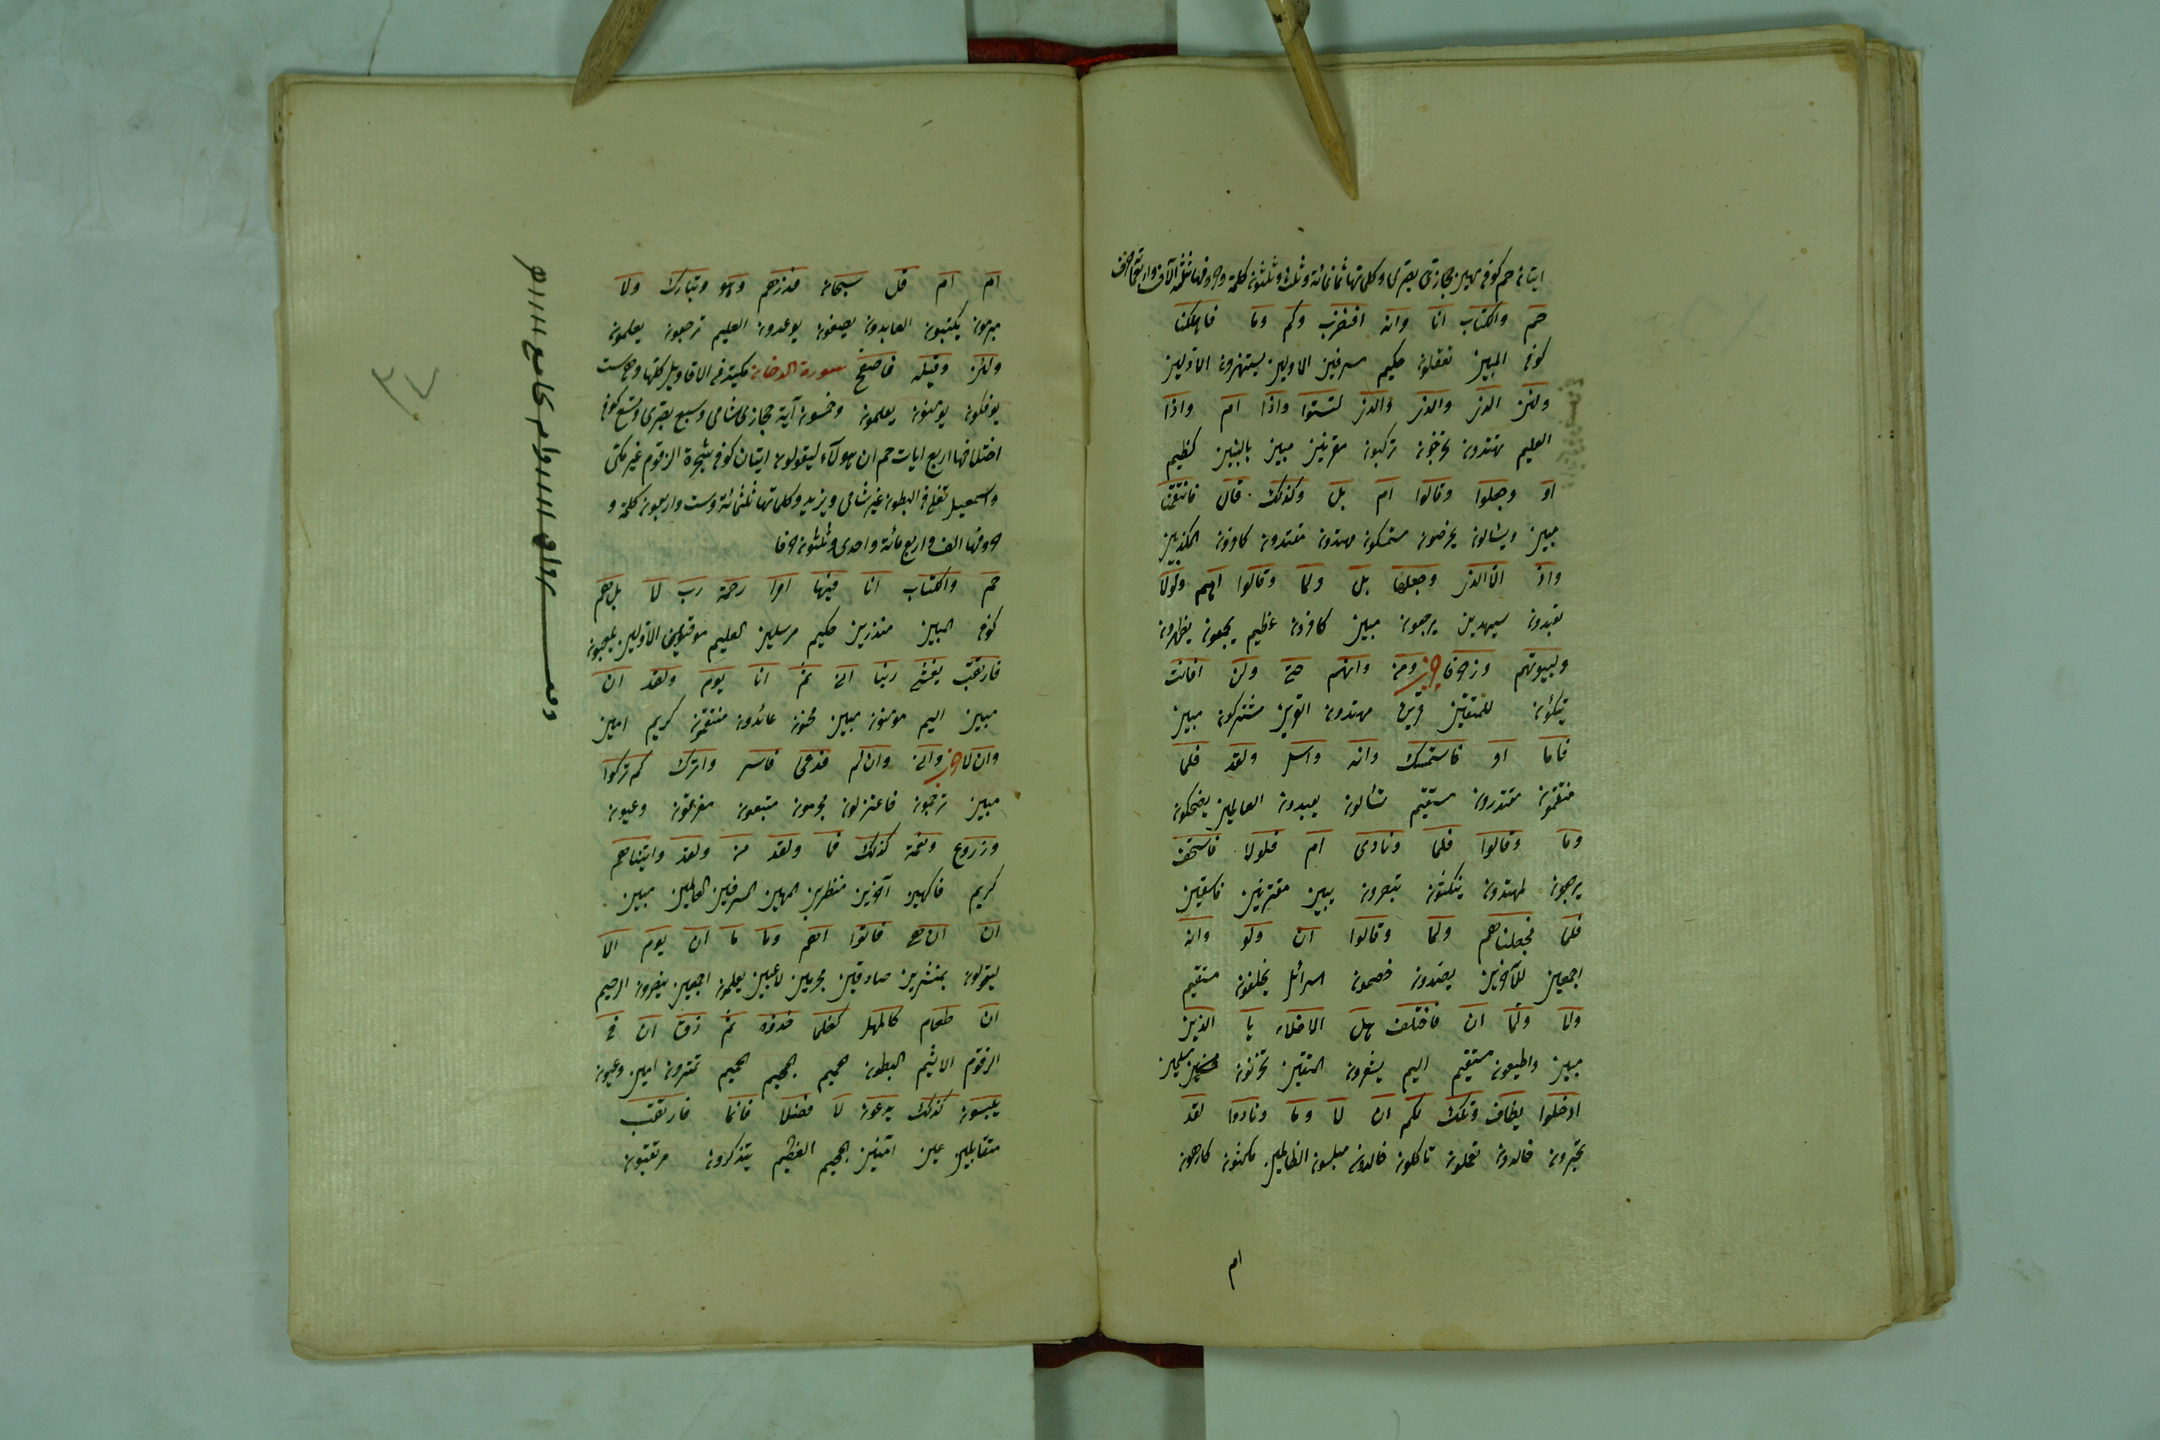 ايتان حم كوفى مهين حجازى بصرى وكلماتها ثمانمائة وثلث وثلثون كلمة وحروفها ثلثة آلاف واربعمائة حرف
حم والكتاب انا وانه افنضرب وكم وما فاهلكنا
كوفى المبين تعقلون حكيم مسرفين الاولين يستهزؤن الاولين
ولئن الذى والذى والذى لتستوا واذا ام واذا
العليم تهتدون تخرجون تركبون مقرنين مبين بالبنين كظيم
او وجعلوا وقالوا ام بل وكذلك قال فانتقمنا
مبين ويسالون يخرصون مستمسكون مهتدون مقتدون كافرون المكذبين
واذ الا الذى وجعلها بل ولما وقالوا اهم ولولا
تعبدون سيهدين يرجعون مبين كافرون عظيم يجمعون يظهرون
ولبيوتهم وزخرفا ومن وانهم حتى ولن افانت
يتكؤن للمتقين قرين مهتدون القرين مشتركون مبين
فاما او فاستمسك وانه واسل ولقد فلما
منتقمون مقتدرون مستقيم تسالون يعبدون العالمين يضحكون
وما وقالوا فلما ونادى ام فلولا فاستخف
يرجعون لمهتدون ينكثون تبصرون يبين مقترنين فاسقين
فلما فجعلناهم ولما وقالوا ان ولو وانه
اجمعين للآخرين يصدون خصمون اسرائل يخلفون مستقيم
ولا ولما ان فاختلف هل الاخلاء يا الذين
مبين واطيعون مستقيم اليم يشعرون المتقين تحزنون مسلمين
ادخلوا يطاف وتلك لكم ان لا وما ونادوا لقد
تحبرون خالدون تعملون تاكلون خالدون مبلسون الظالمين ماكثون كارهون
ام
ام ام قل سبحان فذرهم وهو وتبارك ولا
مبرمون يكتبون العابدون يصفون يوعدون العليم ترجعون يعلمون
ولئن وقيله فاصفح سورة الدخان مكية فى الاقاويل كلها وهى ست
يوفكون يومنون يعلمون وخمسون آية حجازى شامى وسبع بصرى وتسع كوفى
اختلافها اربع ايات حم ان هولاء ليقولون ايتان كوفى شجرة الزقوم غير مكى
واسمعيل تغلى فى البطون غير شامى ويزيد وكلماتها ثلثمائة وست واربعون كلمة و
حروفها الف واربع مائة واحدى وثلثون حرفا
حم والكتاب انا فيها امرا رحمة رب لا بل هم
كوفى المبين منذرين حكيم مرسلين العليم موقنين الاولين يلعبون
فارتقب يغشى ربنا انى ثم انا يوم ولقد ان
مبين اليم مومنون مبين مجنون عائدون منتقمون كريم امين
وان لا وانى وان لم فدعى فاسر واترك كم تركوا
مبين ترجمون فاعتزلون مجرمون متبعون مغرقون وعيون
وزروع ونعمة كذلك فما ولقد من ولقد واتيناهم
كريم فاكهين آخرين منظرين المهين المسرفين العالمين مبين
ان ان هى فاتوا اهم وما ما ان يوم الا
ليقولون بمنشرين صادقين مجرمين لاعبين يعلمون اجمعين ينصرون الرحيم
ان طعام كالمهل كغلى خذوه ثم ذق ان فى
الزقوم الاثيم البطون حميم الجحيم الحميم تمترون امين وعيون
يلبسون كذلك يدعون لا فضلا فانما فارتقب
متقابلين عين آمنين الجحيم العظيم يتذكرون مرتقبون